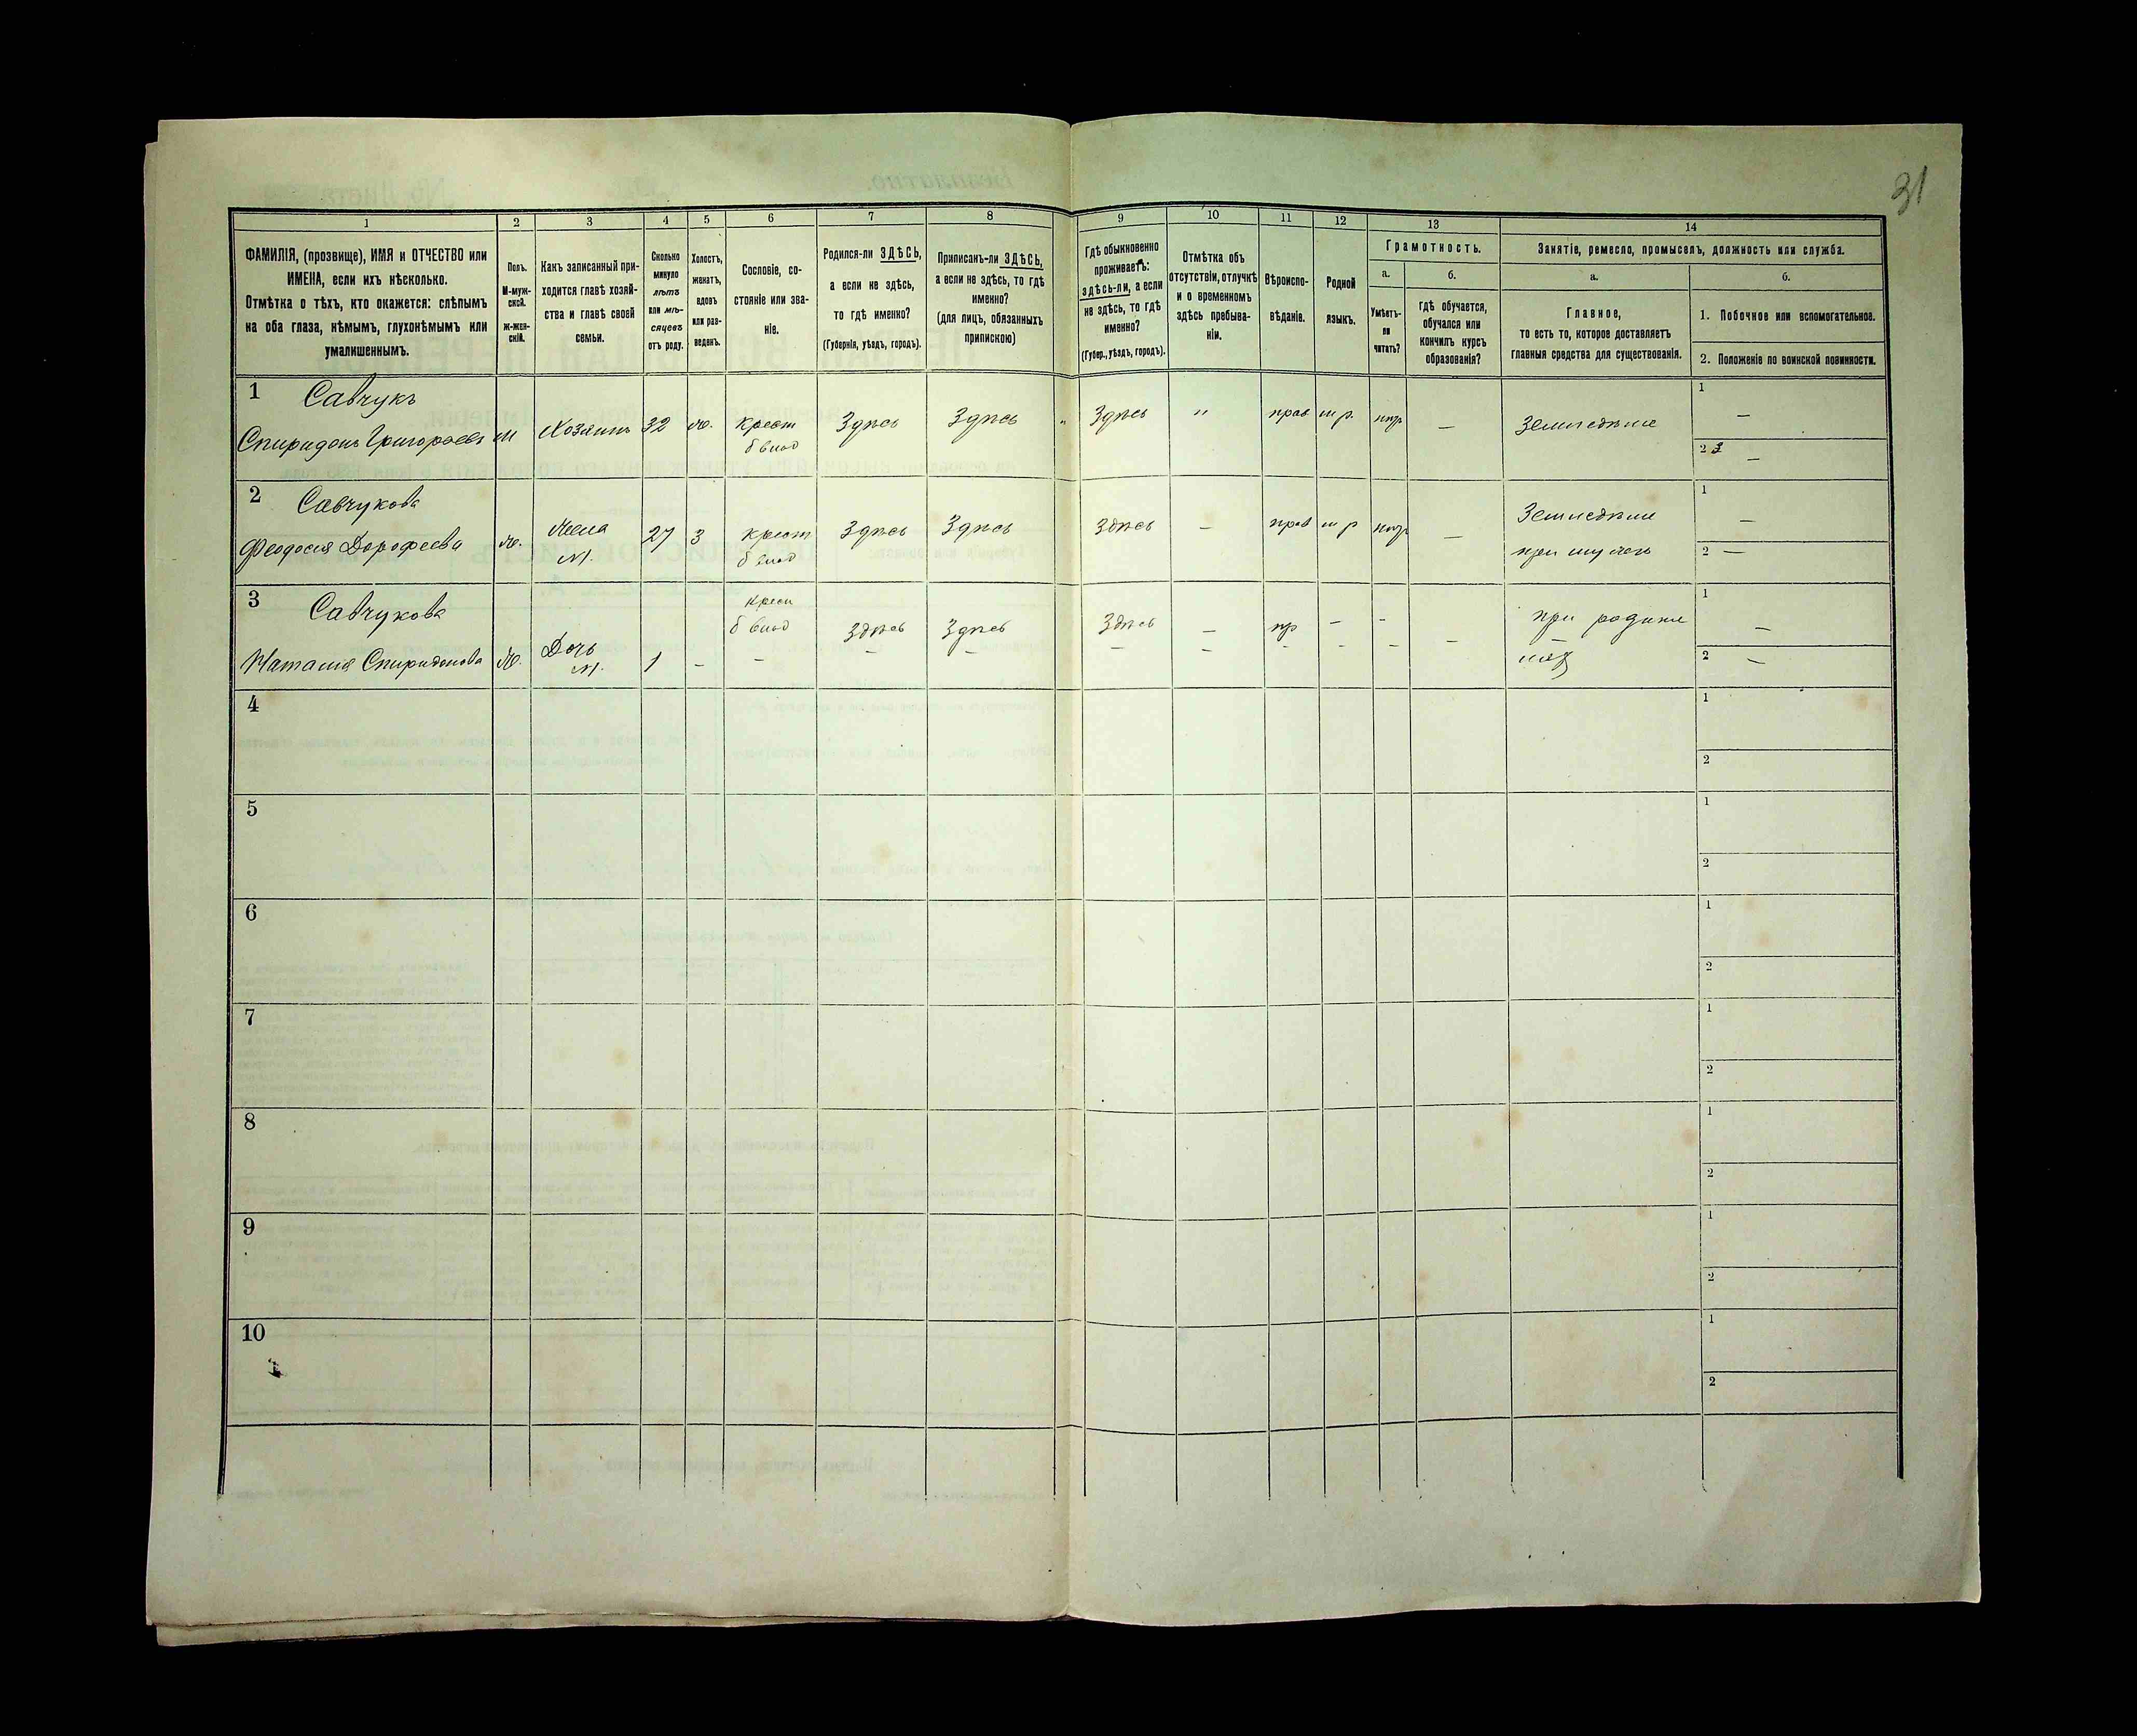 31
1
2
3
4
5
6
7
8
9
10
11
12
13
14
ФАМИЛІЯ, (прозвище), ИМЯ и ОТЧЕСТВО или
ИМЕНА, если ихъ нѣсколько.
Отмѣтка о тѣхъ, кто окажется: слѣпымъ
на оба глаза, нѣмымъ, глухонѣмымъ или
умалишеннымъ.
Полъ.
М-муж-
ской.
ж-жен-
скій.
Какъ записанный при-
ходится главѣ хозяй-
ства и главѣ своей
семьи.
Сколько
минуло
лѣтъ
или мѣ-
сяцевъ
отъ роду.
Холостъ,
женатъ,
вдовъ
или раз-
веденъ.
Сословіе, со-
стояніе или зва-
ніе.
Родился-ли ЗДѢСЬ,
а если не здѣсь,
то гдѣ именно?
(Губернія, уѣздъ, городъ).
Приписанъ-ли ЗДѢСЬ,
а если не здѣсь, то гдѣ
именно?
(для лицъ, обязанныхъ
припискою)
Гдѣ обыкновенно
проживаетъ:
здѣсь-ли, а если
не здѣсь, то гдѣ
именно?
(Губер., уѣздъ, городъ).
Отмѣтка объ
отсутствіи, отлучкѣ
и о временномъ
здѣсь пребыва-
ніи.
Вѣроиспо-
вѣданіе.
Родной
языкъ.
Грамотность.
а.
Умѣетъ-
ли
читать?
б.
гдѣ обучается,
обучался или
кончилъ курсъ
образованія?
Занятіе, ремесло, промыселъ, должность или служба.
а.
Главное,
то есть то, которое доставляетъ
главныя средства для существованія.
б.
1. Побочное или вспомогательное.
2. Положеніе по воинской повинности.
1 Савчукъ
Спиридонъ Григорьевъ
М
Хозяинъ
32
ж.
Крест
б влад
Здѣсь
Здѣсь
"
Здѣсь
"
прав
м р.
нѣт
—
Земледѣліе
1 —
2 —
2 Савчукова
Феодосія Дорофеева
ж.
Жена
М.
27
З
крест
б влад
Здѣсь
Здѣсь
Здѣсь
—
прав
м р
нѣт
—
Земледѣліе
при мужѣ
1 —
2 —
3 Савчукова
Наталія Спиридонова
ж.
Дочь
М.
1
-
крест
б влад
-
Здѣсь
-
Здѣсь
-
Здѣсь
-
—
-
пр
-
-
-
-
-
—
при родите
1 —
2 —
4
1
2
5
1
2
6
1
2
7
1
2
8
1
2
9
1
2
10
1
2